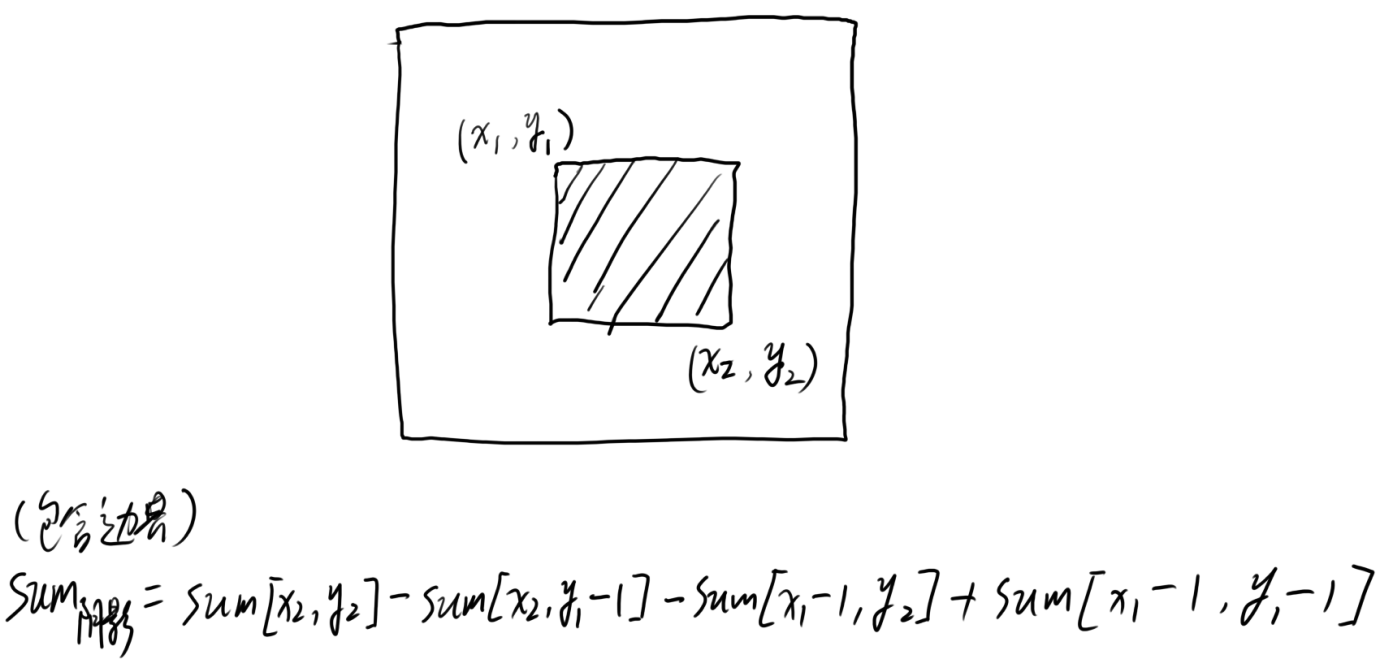 (x₁,y₁)
(x₂,y₂)
(包含边界)
sum阴影=sum[x₂,y₂]-sum[x₂,y₁-1]-sum[x₁-1,y₂]+sum[x₁-1,y₁-1]